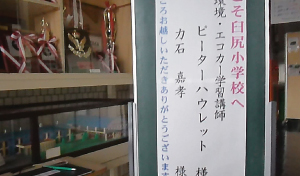 そ臼尻小学校へ
環境・エコカー学習講師
ピーターハウレット 様
力石 嘉孝 様
ころお越しいただきありがとうございます